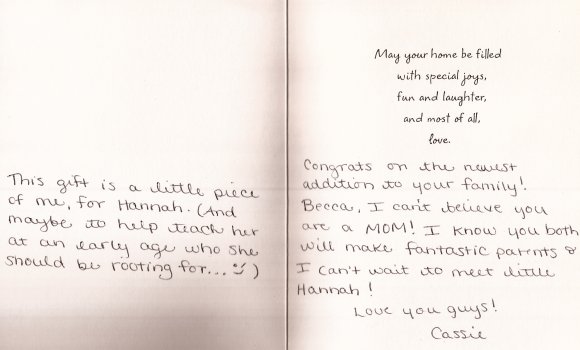 This gift is a little piece
of me, for Hannah. (And
maybe to help teach her
at an early age who she
should be rooting for... )
May your home be filled
with special joys,
fun and laughter,
and most of all,
love.
Congrats on the newest
addition to your family!
Becca, I can't believe you
are a MOM! I know you both
will make fantastic parents &
I can't wait to meet little
Hannah!
Love you guys!
Cassie